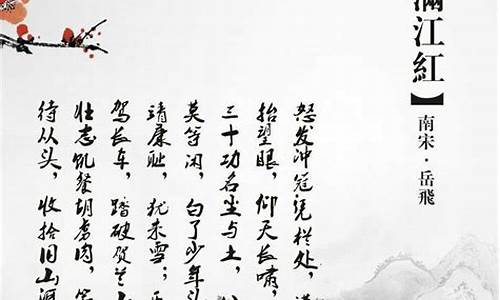 滿江紅】
南宋·岳飛
怒发冲冠凭栏处，潇
抬望眼，仰天长啸，
三十功名尘与土，八
莫等闲，白了少年头
靖康耻，犹未雪；臣
驾长车，踏破贺兰山
壮志饥餐胡虏肉，笑
待从头，收拾旧山河